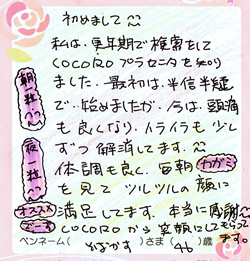 初めまして
私は、更年期で検索をして
COCOROプラセンタを知り
ました。最初は、半信半疑
で、始めましたが、今は、頭痛
も良くなり、イライラも少し
ずつ解消してます。
体調も良く、毎朝わがミラ
を見てツルツルの顔に
満足してます。本当に感謝
COCOROから笑顔にしてもらって
ます。
朝一粒
夜一粒
オススメ
でーす
ペンネーム( )さま(46)歳